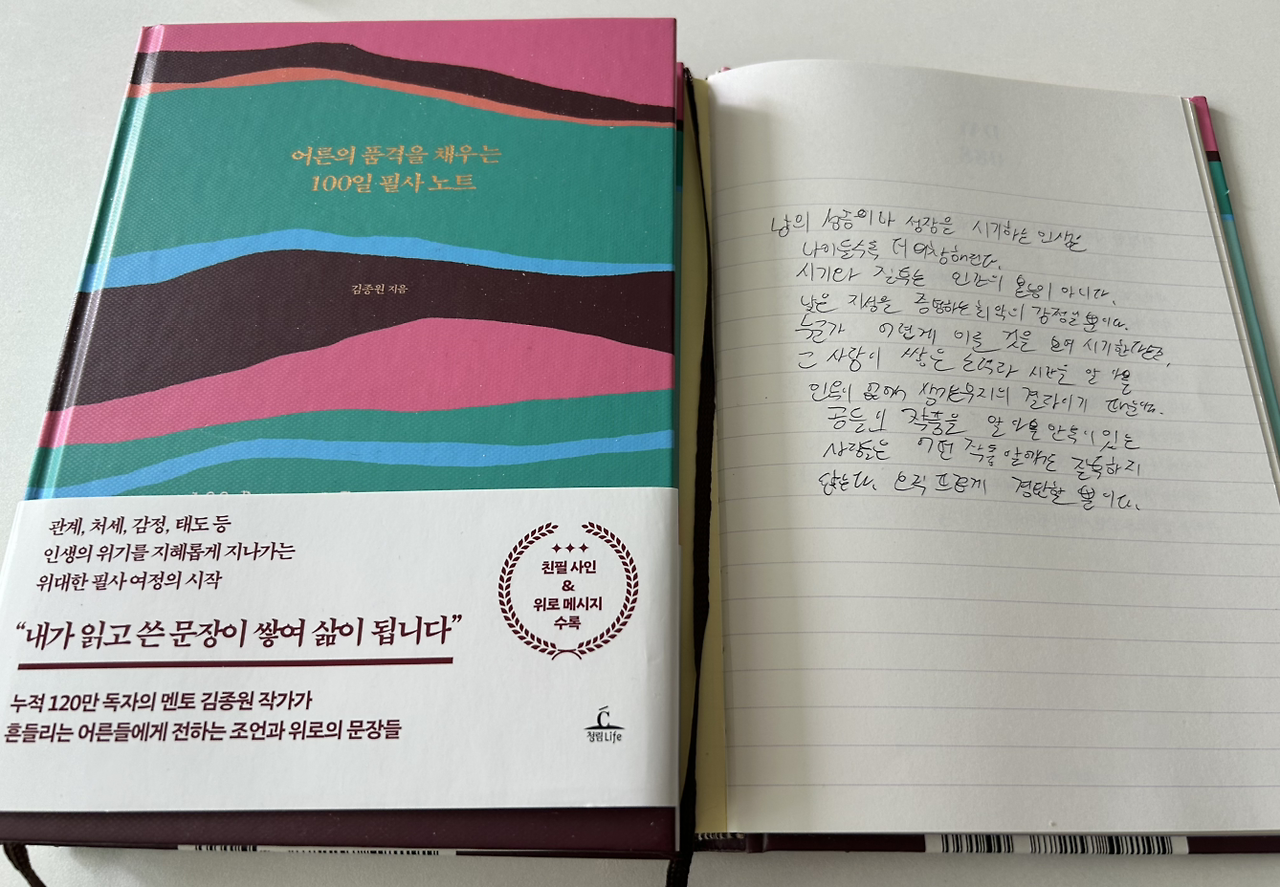 어른의 품격을 채우는
100일 필사 노트
김종원 지음
관계, 처세, 감정, 태도 등
인생의 위기를 지혜롭게 지나가는
위대한 필사 여정의 시작
“내가 읽고 쓴 문장이 쌓여 삶이 됩니다”
누적 120만 독자의 멘토 김종원 작가가
흔들리는 어른들에게 전하는 조언과 위로의 문장들
친필 사인
&
위로 메시지
수록
청림Life
남의 성장을 시기하는 인생은
나이들수록 더
시기와 질투는 인간의 본능이 아니다.
낮은 지성을 증명하는 최악의 감정일 뿐이다.
누군가 어렵게 이룬 것을 보며 시기한다면,
그 사람이 쌓은 노력과 시간을 알아볼
안목이 없어 생긴 무지의 결과이기 때문이다.
공들인 작품을 알아볼 안목이 있는
사람들은 어떤 작품 앞에서도 질투하지
않는다. 오직 뜨겁게 경탄할 뿐이다.